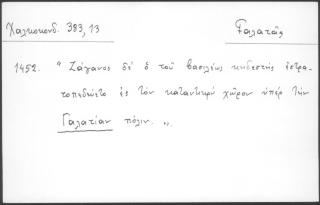 Χαλκοκονδ. 383,13
Γαλατᾶς
1452. "Ζάγανος δὲ ὁ τοῦ βασιλέως κηδεστὴς ἐστρα-
τοπεδεύετο ἐς τὸν καταντικρὺ χῶρον ὑπὲρ τὴν
Γαλατίαν πόλιν. ".